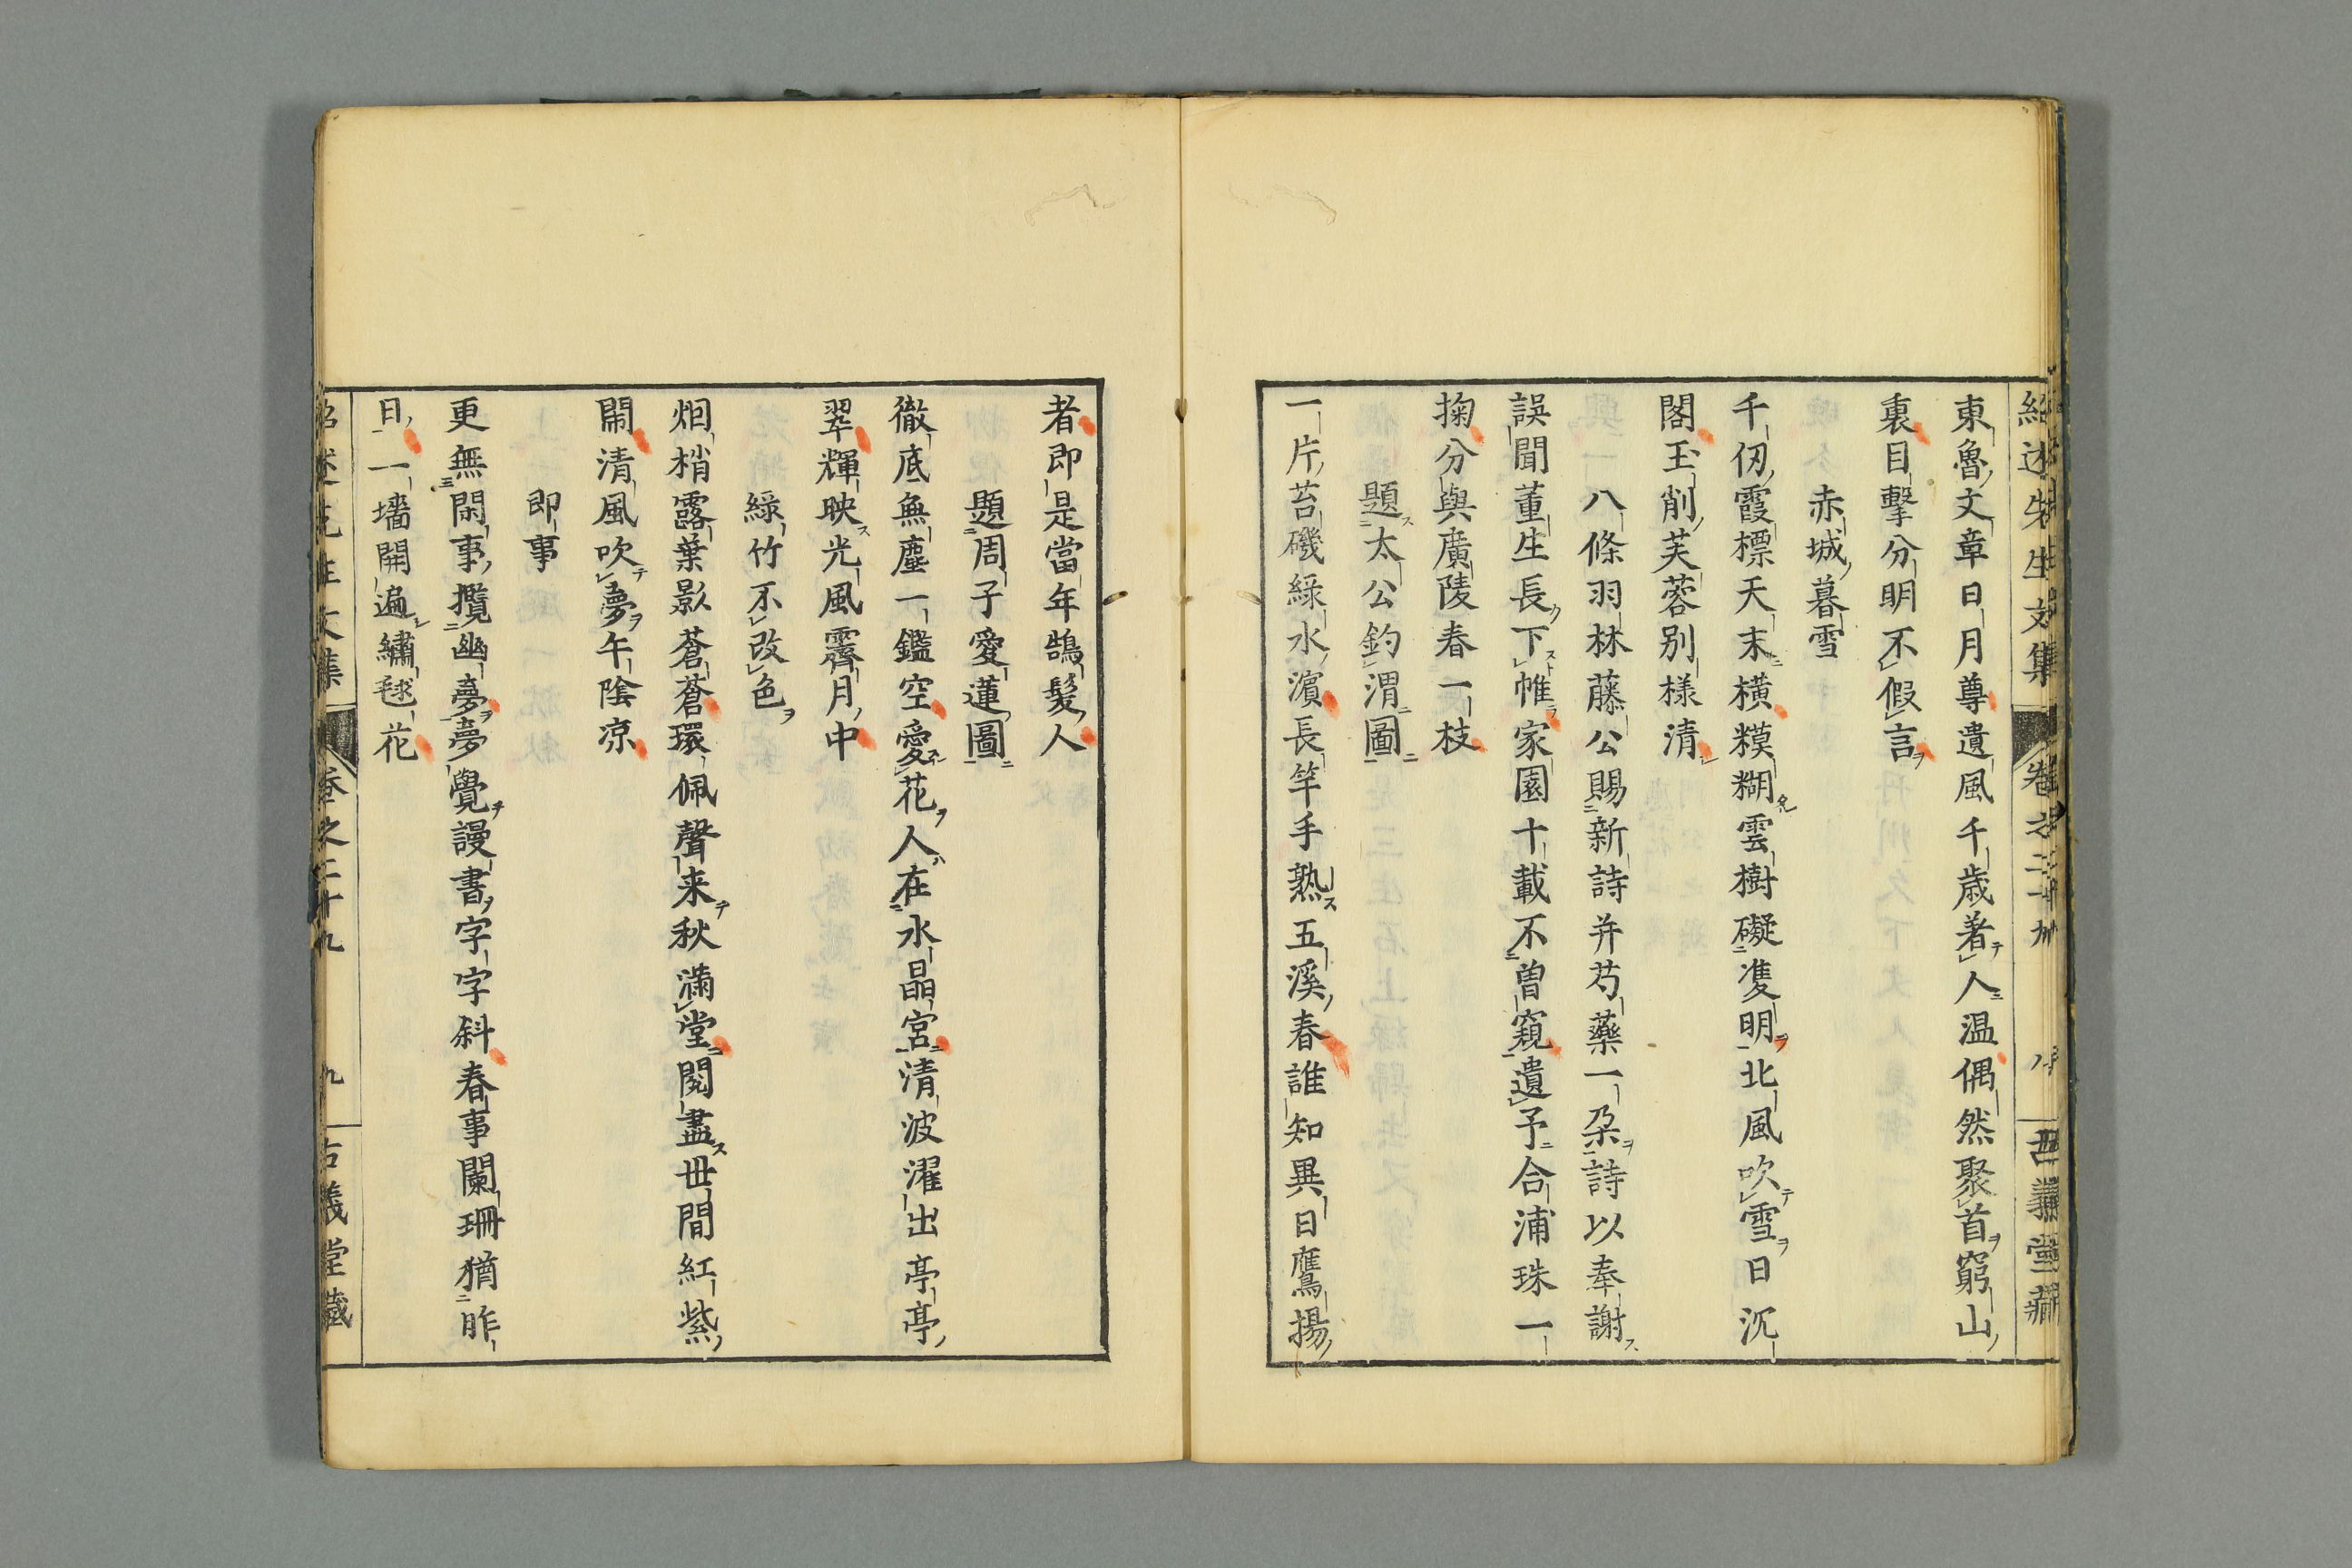 紹述先生文集 卷之二十九 八 古義堂藏
東魯文章日月尊遺風千歳著人温偶然聚首窮山
裏目擊分明不假言
赤城暮雪
千仞霞標天末横糢糊雲樹礙雙明北風吹雪日沉
閣玉削芙蓉別様清
八條羽林藤公賜新詩并芍藥一朶詩以奉謝
誤聞董生長下帷家園十載不曽窺遺予合浦珠一
掬分與廣陵春一枝
題太公釣渭圖
一片苔磯緑水濵長竿手熟五溪春誰知異日鷹揚
者即是當年鵠髮人
題周子愛蓮圖
徹底無塵一鑑空愛花人在水晶宮清波濯出亭亭
翠輝映光風霽月中
緑竹不改色
烟梢露葉影蒼蒼環佩聲来秋滿堂閲盡世間紅紫
閙清風吹夢午陰凉
即事
更無閑事攪幽夢夢覺謾書字字斜春事闌珊猶昨
日一墻開遍繡毬花
紹述先生文集 卷之二十九 九 古義堂藏